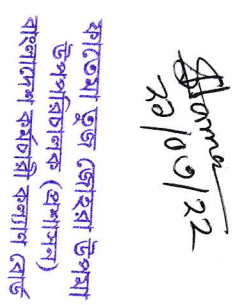 ফাতেমা তুজ জোহরা উপমা
উপপরিচালক (প্রশাসন)
বাংলাদেশ কর্মচারী কল্যাণ বোর্ড